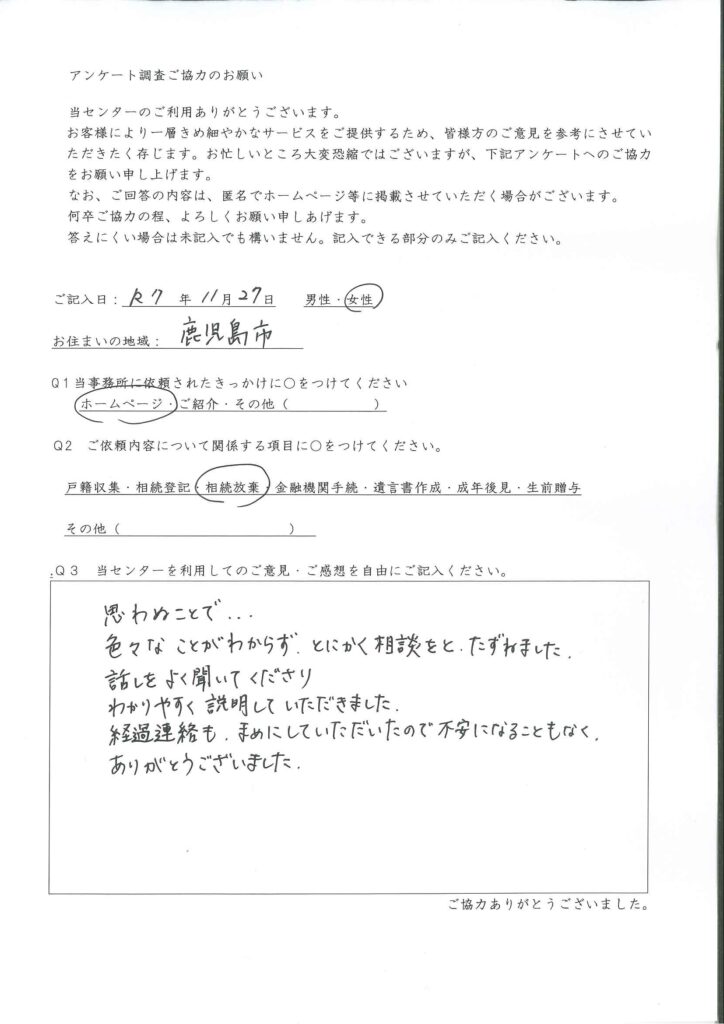 アンケート調査ご協力のお願い
当センターのご利用ありがとうございます。
お客様により一層きめ細やかなサービスをご提供するため、皆様方のご意見を参考にさせてい
ただきたく存じます。お忙しいところ大変恐縮ではございますが、下記アンケートへのご協力
をお願い申し上げます。
なお、ご回答の内容は、匿名でホームページ等に掲載させていただく場合がございます。
何卒ご協力の程、よろしくお願い申しあげます。
答えにくい場合は未記入でも構いません。記入できる部分のみご記入ください。
ご記入日： R7 年 11月 27日 男性・女性
お住まいの地域： 鹿児島市
Q1当事務所に依頼されたきっかけに〇をつけてください
ホームページ・ご紹介・その他（ ）
Q2 ご依頼内容について関係する項目に〇をつけてください。
戸籍収集・相続登記・相続放棄・金融機関手続・遺言書作成・成年後見・生前贈与
その他（ ）
.Q3 当センターを利用してのご意見・ご感想を自由にご記入ください。
思わぬことで...
色々な ことがわからず. とにかく相談をと. たずねました.
話しを よく聞いてくださり
わかりやすく 説明して いただきました.
経過連絡も. まめにしていただいたので不安になることもなく.
ありがとうございました.
ご協力ありがとうございました。